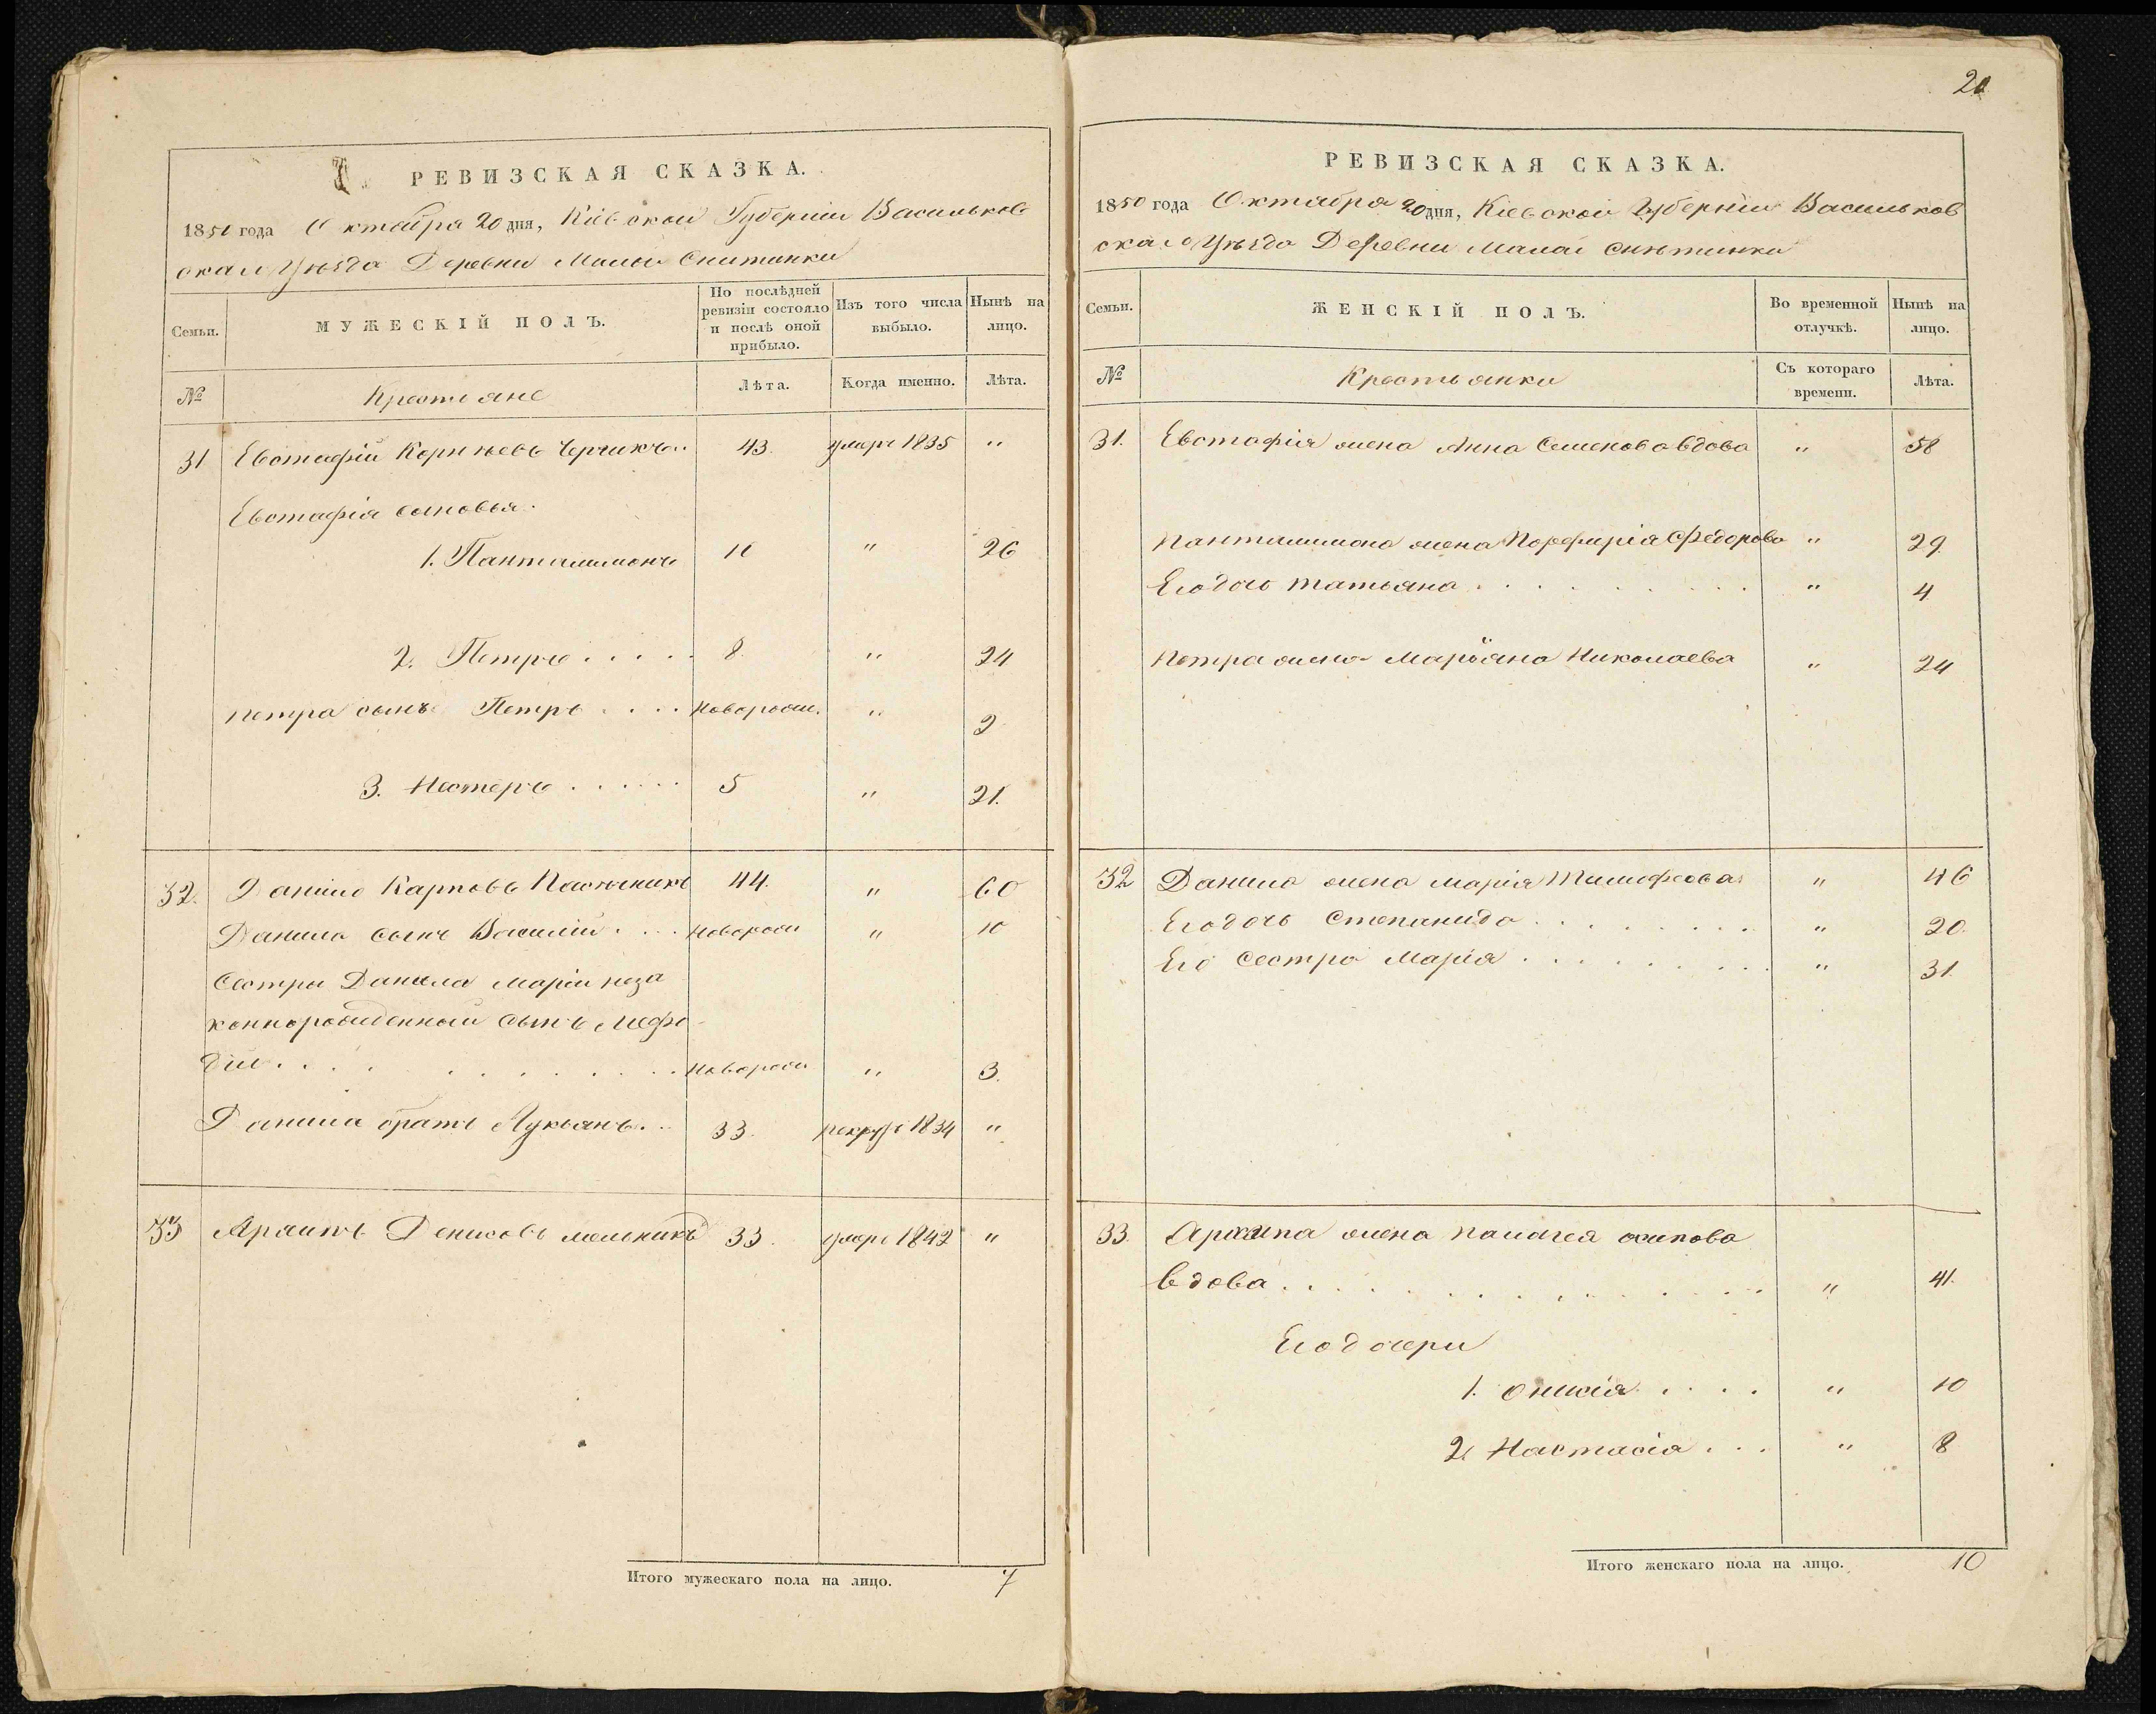 20
РЕВИЗСКАЯ СКАЗКА.
1850 года Октября 20 дня, Кіевской Губерніи Васильков
скаго Уѣзда Деревни Малой Снитинки
Семьи.
МУЖЕСКІЙ ПОЛЪ.
По послѣдней ревизіи состояло и послѣ оной прибыло.
Изъ того числа выбыло.
Нынѣ на лицо.
№
Крестьяне
Лѣта.
Когда именно.
Лѣта.
31 Евстафій Корнѣевъ 43. умеръ 1835 "
Евстафія сыновья.
1. Панталимонъ 10 " 26
2. Петръ . . . . . 8. " 24
Петра сынъ Петръ . . . . новорожд. " 2
3. Нестеръ . . . . . . 5 " 21.
32. Данило Карповъ Пасѣчникъ 44. " 60
Данила сынъ Василій . . . новорожд " 10
Сестры Данила Маріи неза
коннорожденный сынъ Мефо
дій . . . . . . . . . . новорожд " 3.
Данила братъ Лукьянъ . . 33. рекрутъ 1834 "
33 Архипъ Денисовъ Мельникъ 33. умеръ 1842 "
Итого мужескаго пола на лицо. 7
РЕВИЗСКАЯ СКАЗКА.
1850 года Октября 20 дня, Кіевской Губерніи Васильков
скаго Уѣзда Деревни Малой Снѣтинки
Семьи.
ЖЕНСКІЙ ПОЛЪ.
Во временной отлучкѣ.
Нынѣ на лицо.
№
Крестьянки
Съ котораго времени.
Лѣта.
31. Евстафія жена Анна Семенова вдова " 58
Панталимона жена Порфирія Федорова " 29
Его дочь Татьяна . . . . . . . . " 4
Петра жена Маріяна Николаева " 24
32 Данила жена Марія Тимофеева " 46
Его дочь Степанида . . . . . . . . " 20.
Его Сестра Марія . . . . . . . . . " 31.
33. Архипа жена Палагея Осипова
вдова . . . . . . . . . . . . . " 41.
Его дочери
1. Онисія . . . . " 10
2. Настасія . . . " 8
Итого женскаго пола на лицо. 10